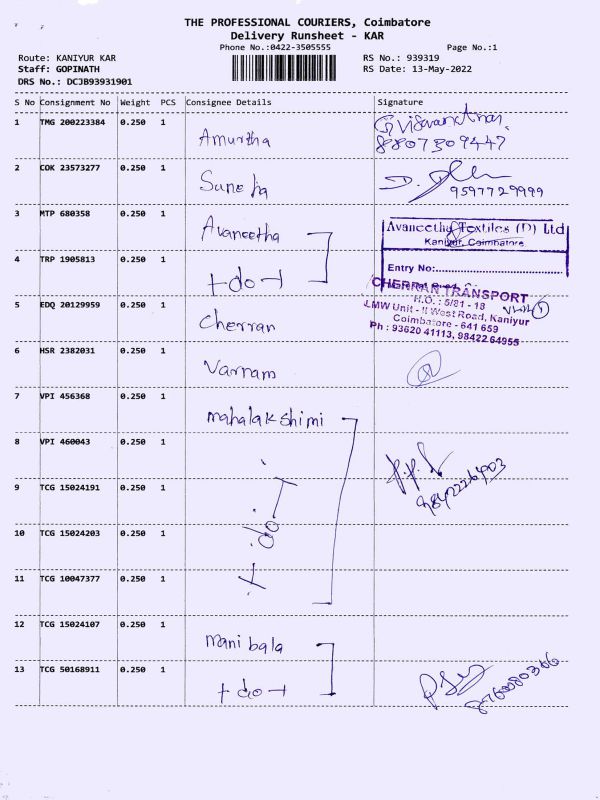 THE PROFESSIONAL COURIERS, Coimbatore
Delivery Runsheet - KAR
Phone No.:0422-3505555
Page No.:1
Route: KANIYUR KAR
RS No.: 939319
Staff: GOPINATH
RS Date: 13-May-2022
DRS No.: DCJB93931901
S No Consignment No Weight PCS Consignee Details Signature
1 TMG 200223384 0.250 1 Amurtha
8807309447
2 COK 23573277 0.250 1
9597729999
3 MTP 680358 0.250 1 Avaneetha
Avaneetha Textiles (P) Ltd
Kaniyur, Coimbatore
Entry No:
4 TRP 1905813 0.250 1 +do+
CHERRAN TRANSPORT
H.O. : 5/81 - 18
LMW Unit - II West Road, Kaniyur
Coimbatore - 641 659
Ph : 93620 41113, 98422 64955
5 EDQ 20129959 0.250 1 Cherran
6 HSR 2382031 0.250 1 Varnam
7 VPI 456368 0.250 1 mahalakshimi
8 VPI 460043 0.250 1
9842226403
9 TCG 15024191 0.250 1
+do+
10 TCG 15024203 0.250 1
11 TCG 10047377 0.250 1
12 TCG 15024107 0.250 1 manibala
13 TCG 50168911 0.250 1 +do+